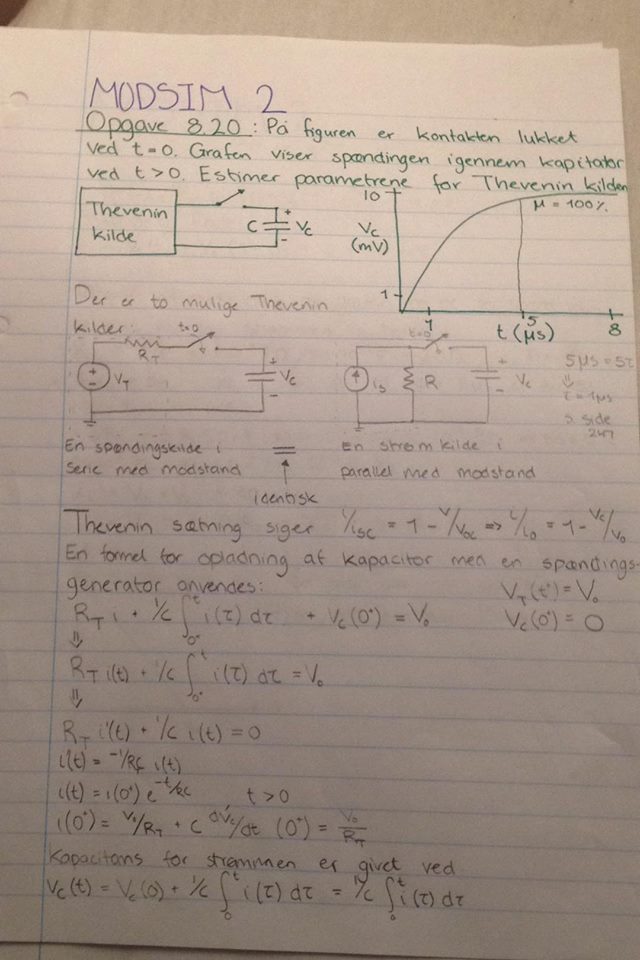 MODSIM 2
Opgave 8.20: På figuren er kontakten lukket
ved t=0. Grafen viser spændingen igennem kapitator
ved t>0. Estimer parametrene for Thevenin kilden
Thevenin
kilde
C
+
Vc
-
10
Vc
(mV)
1
μ = 100%
1
5
8
t (μs)
Der er to mulige Thevenin
kilder:
t=0
RT
VT
+
Vc
-
t=0
is
R
+
Vc
-
5μs = 5τ
⇓
τ = 1μs
side
247
En spændingskilde i
serie med modstand
=
identisk
En strømkilde i
parallel med modstand
Thevenin sætning siger i/isc = 1 - V/Voc => i/i0 = 1 - Vc/V0
En formel for opladning af kapacitor med en spændings-
generator anvendes:
VT(t⁺) = V0
RT i + 1/C ∫0⁺^t i(τ) dτ + Vc(0⁺) = V0
Vc(0⁺) = 0
⇓
RT i(t) + 1/C ∫0⁺^t i(τ) dτ = V0
⇓
RT i'(t) + 1/C i(t) = 0
i'(t) = -1/RC i(t)
i(t) = i(0⁺) e^-t/RC t>0
i(0⁺) = V0/RT + C dVc/dt (0⁺) = V0/RT
Kapacitans for strømmen er givet ved
Vc(t) = Vc(0) + 1/C ∫0^t i(τ) dτ = 1/C ∫0^t i(τ) dτ